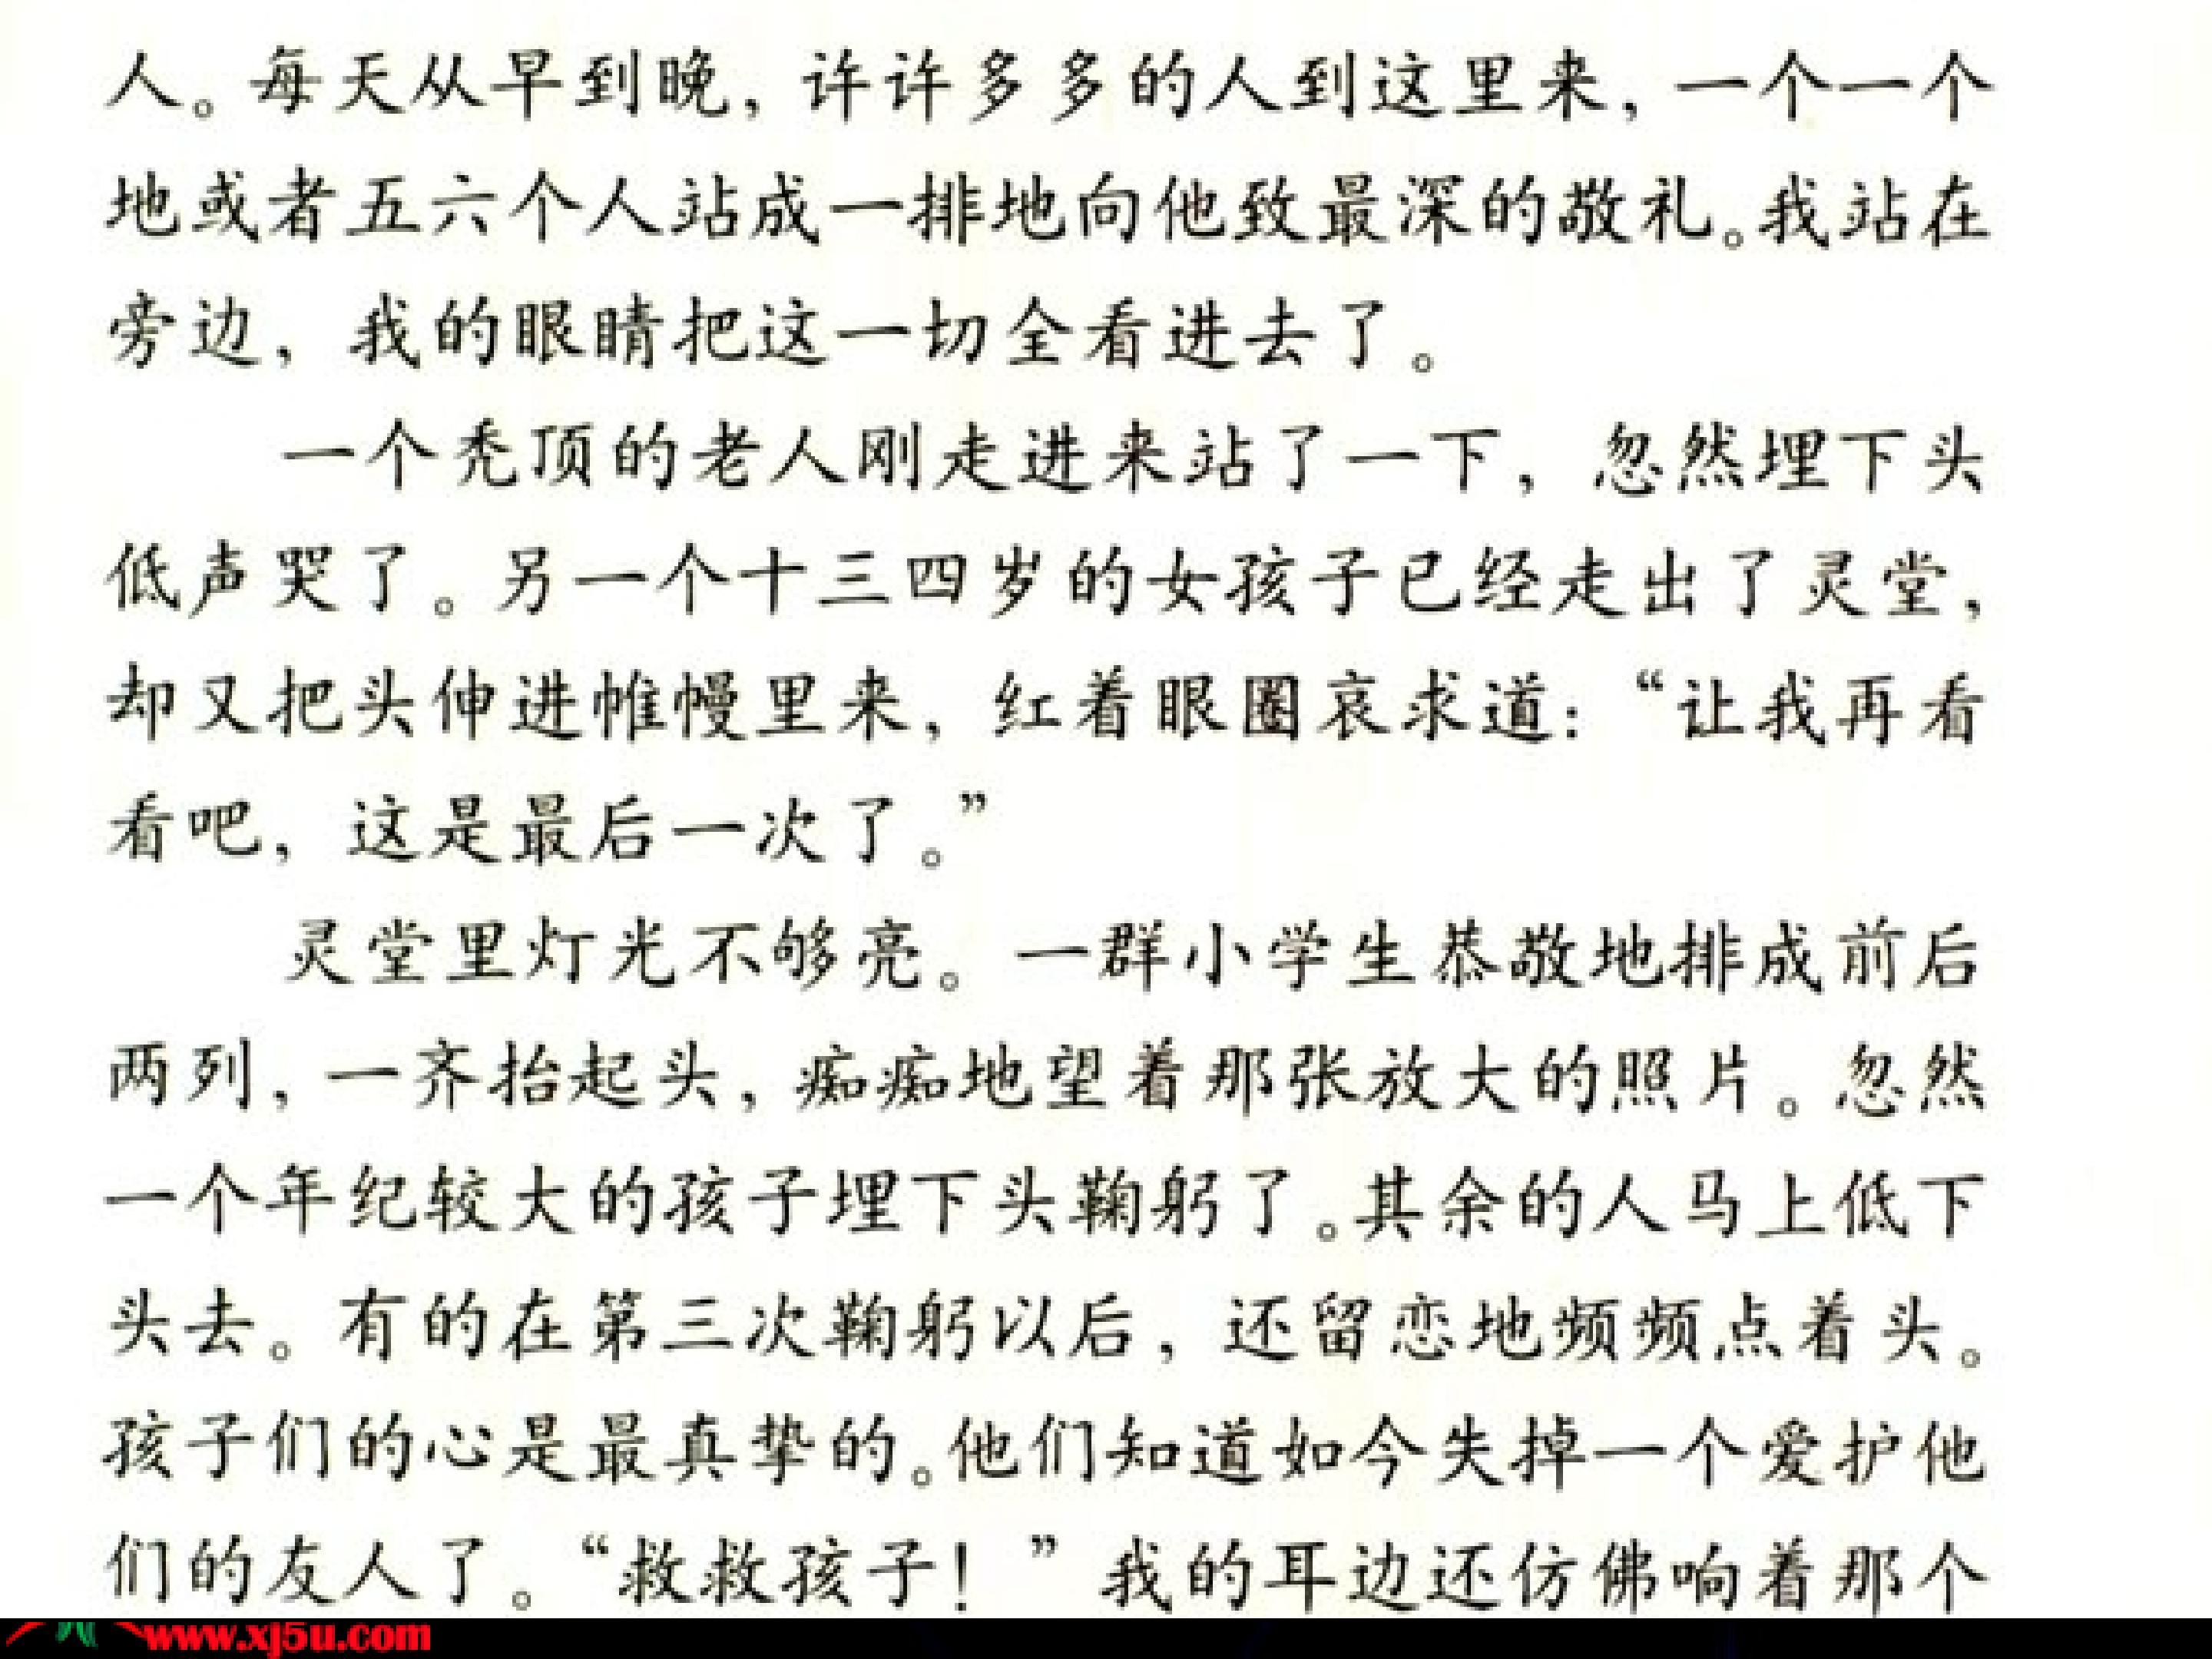 人。每天从早到晚，许许多多的人到这里来，一个一个
地或者五六个人站成一排地向他致最深的敬礼。我站在
旁边，我的眼睛把这一切全看进去了。
一个秃顶的老人刚走进来站了一下，忽然埋下头
低声哭了。另一个十三四岁的女孩子已经走出了灵堂，
却又把头伸进帷幔里来，红着眼圈哀求道：“让我再看
看吧，这是最后一次了。”
灵堂里灯光不够亮。一群小学生恭敬地排成前后
两列，一齐抬起头，痴痴地望着那张放大的照片。忽然
一个年纪较大的孩子埋下头鞠躬了。其余的人马上低下
头去。有的在第三次鞠躬以后，还留恋地频频点着头。
孩子们的心是最真挚的。他们知道如今失掉一个爱护他
们的友人了。“救救孩子！”我的耳边还仿佛响着那个
www.xj5u.com